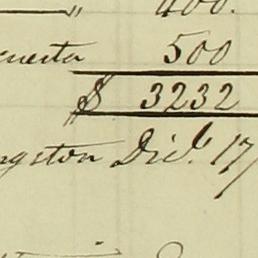 " 400.
cuesta 500
$ 3232
ngston Dic.ͤ 17/